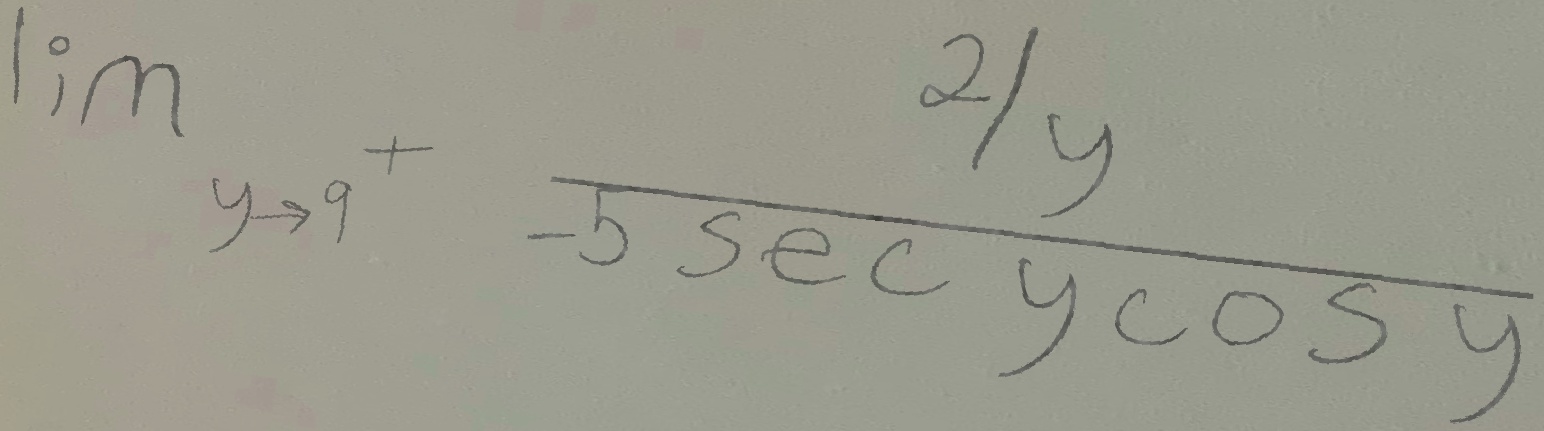 lim y→9⁺ 2/y
-5 sec y cos y